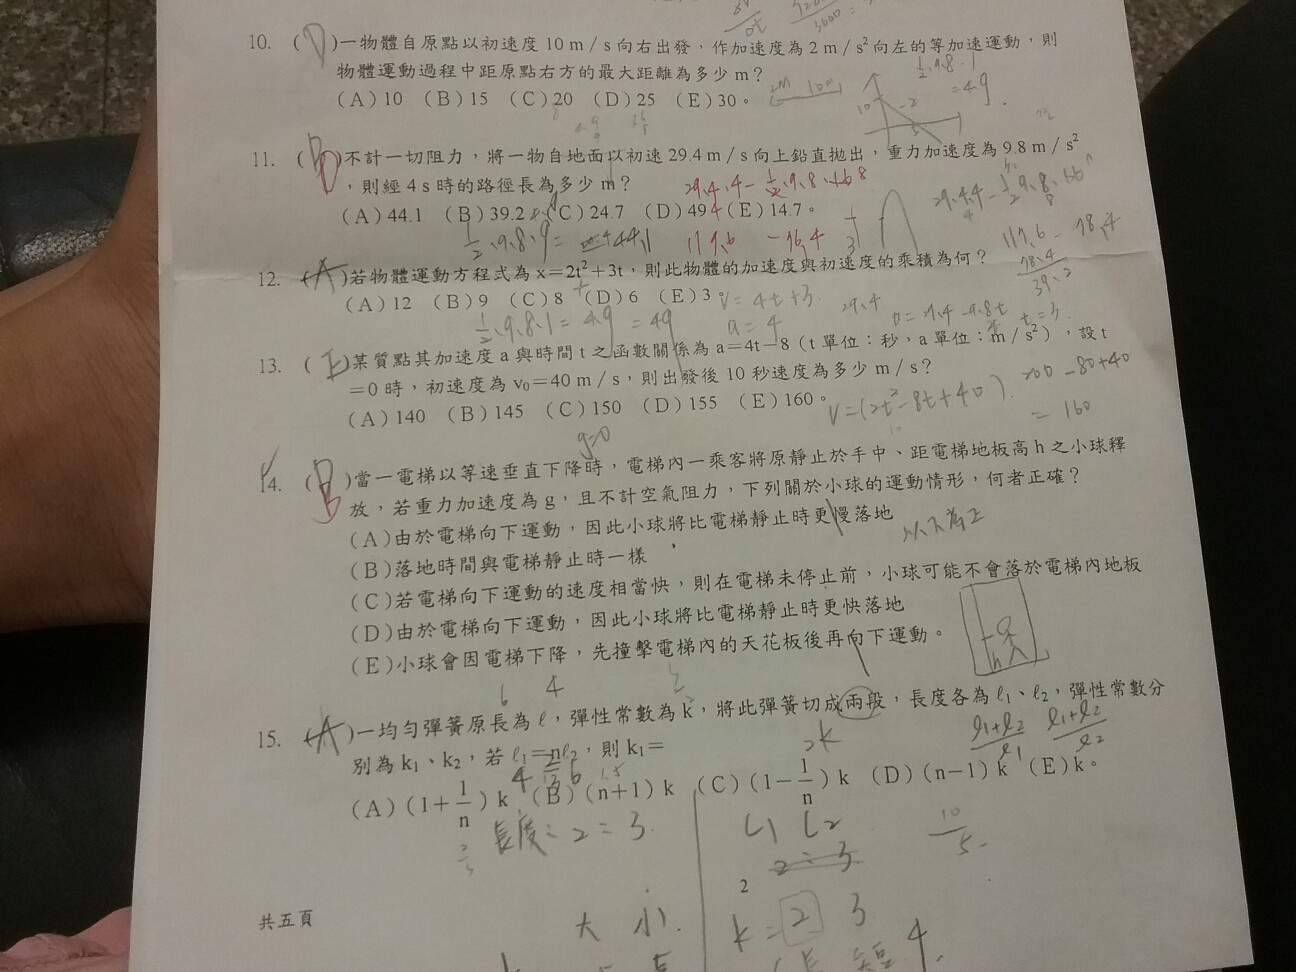 10. (D)一物體自原點以初速度10 m/s向右出發，作加速度為2 m/s²向左的等加速運動，則
物體運動過程中距原點右方的最大距離為多少m？
(A)10 (B)15 (C)20 (D)25 (E)30。
11. (B)不計一切阻力，將一物自地面以初速29.4 m/s向上鉛直拋出，重力加速度為9.8 m/s²
，則經4 s時的路徑長為多少m？
(A)44.1 (B)39.2 (C)24.7 (D)49 (E)14.7。
12. (A)若物體運動方程式為x=2t²+3t，則此物體的加速度與初速度的乘積為何？
(A)12 (B)9 (C)8 (D)6 (E)3。
v=4t+3
a=4
13. (E)某質點其加速度a與時間t之函數關係為a=4t-8（t單位：秒，a單位：m/s²），設t
=0時，初速度為v₀=40 m/s，則出發後10秒速度為多少m/s？
(A)140 (B)145 (C)150 (D)155 (E)160。
v=(2t²-8t+40)
200-80+40
=160
g=0
14. (B)當一電梯以等速垂直下降時，電梯內一乘客將原靜止於手中、距電梯地板高h之小球釋
放，若重力加速度為g，且不計空氣阻力，下列關於小球的運動情形，何者正確？
(A)由於電梯向下運動，因此小球將比電梯靜止時更慢落地
以下為正
(B)落地時間與電梯靜止時一樣
(C)若電梯向下運動的速度相當快，則在電梯未停止前，小球可能不會落於電梯內地板
(D)由於電梯向下運動，因此小球將比電梯靜止時更快落地
(E)小球會因電梯下降，先撞擊電梯內的天花板後再向下運動。
h
6 4
15. (A)一均勻彈簧原長為ℓ，彈性常數為k，將此彈簧切成兩段，長度各為ℓ₁、ℓ₂，彈性常數分
別為k₁、k₂，若ℓ₁=nℓ₂，則k₁=
2k
(A)(1+1/n)k (B)(n+1)k (C)(1-1/n)k (D)(n-1)k (E)k。
長度=2=3
L1 L2
2=3
k=2 3
大 小
共五頁